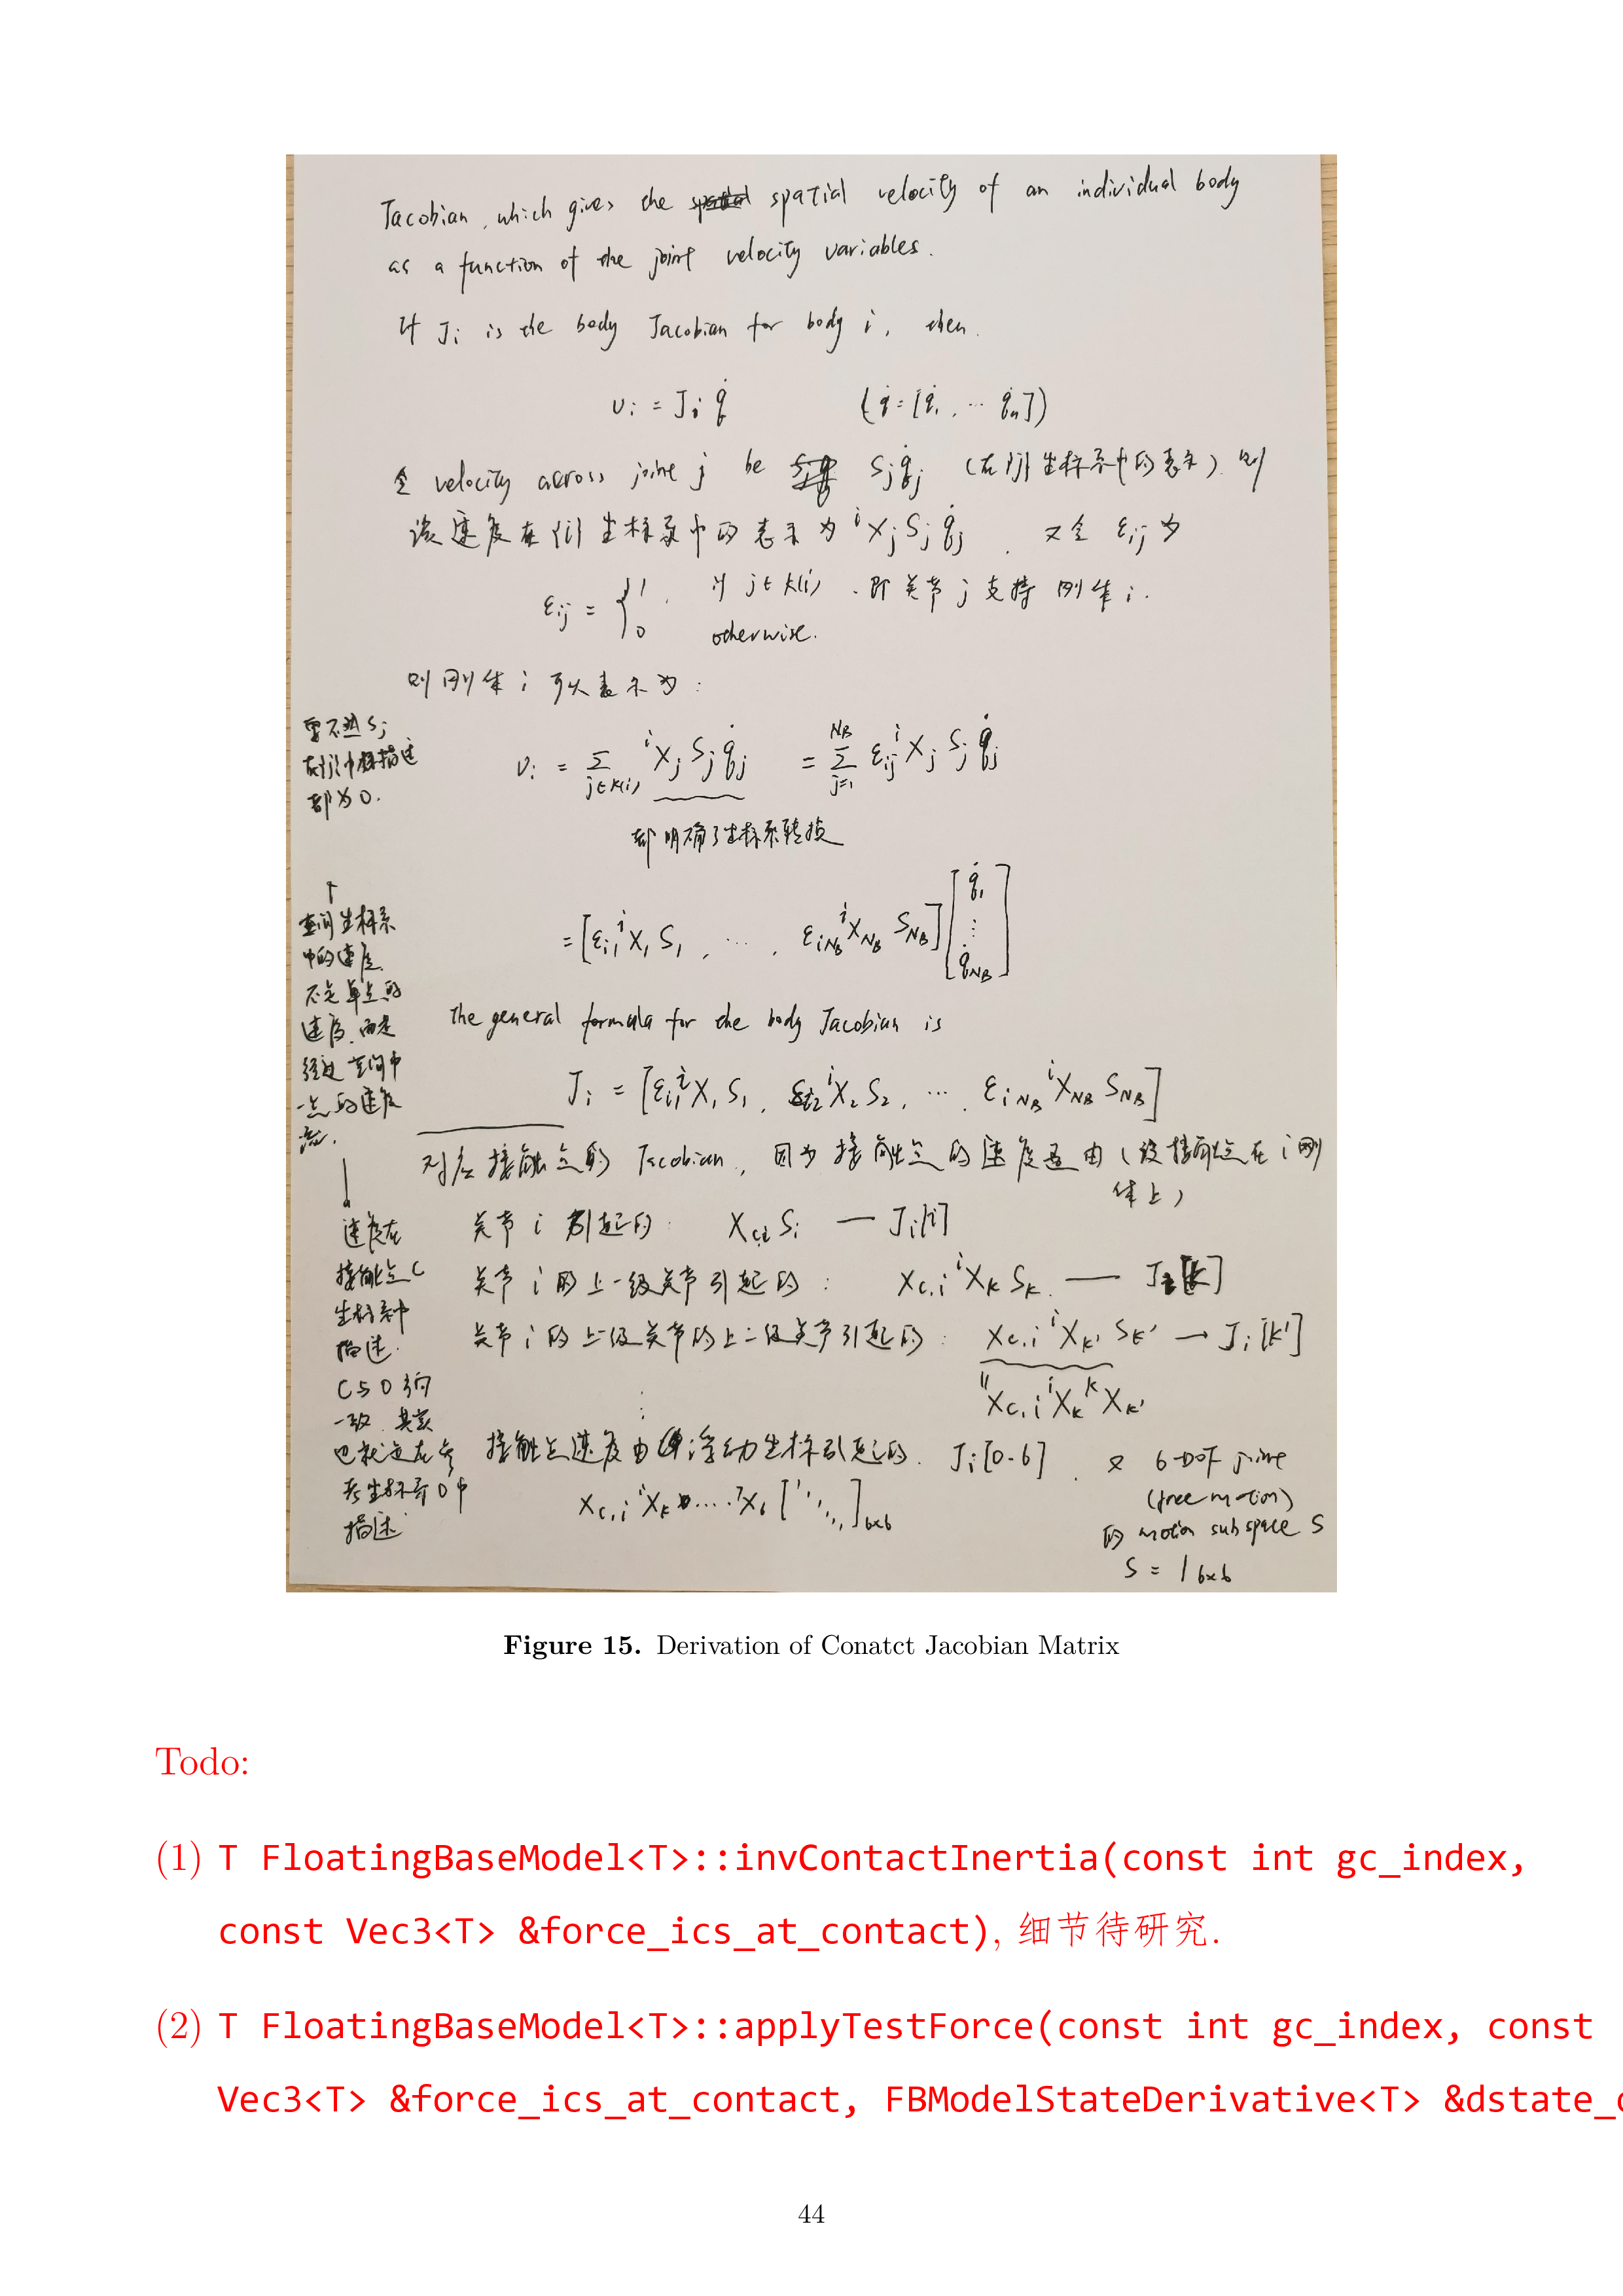 Jacobian, which gives the spatial velocity of an individual body
as a function of the joint velocity variables.
If Ji is the body Jacobian for body i, then.
υi = Ji q̇ (q̇ = [q̇1, ⋯ q̇n])
令 velocity across joint j be Sj q̇j (在{j}坐标系中的表示). 则
该速度在{i}坐标系中的表示为 ⁱXj Sj q̇j . 又令 εij 为
εij = { 1, if j∈κ(i) . 即关节 j 支持刚体 i.
0 otherwise.
则刚体 i 可以表示为:
要不然 Sj
在{j}中描述
都为0.
υi = Σ j∈κ(i) ⁱXj Sj q̇j = Σ j=1 NB εij ⁱXj Sj q̇j
都明确了坐标系转换
= [εi1 ⁱX1 S1 , ⋯ , εiNB ⁱXNB SNB] [q̇1 ⋮ q̇NB]
↑
空间坐标系
中的速度
不是单点的
速度,而是
经过空间中
一点的速度
The general formula for the body Jacobian is
Ji = [εi1 ⁱX1 S1 , εi2 ⁱX2 S2 , ⋯ , εiNB ⁱXNB SNB]
对应接触点的 Jacobian, 因为接触点的速度是由 (设接触点在 i 刚
体上)
关节 i 引起的: Xc,i Si — Ji[i]
关节 i 的上一级关节引起的: Xc,i ⁱXk Sk — Ji[k]
关节 i 的上一级关节的上一级关节引起的: Xc,i ⁱXk' Sk' → Ji[k']
Xc,i ⁱXk ᵏXk'
⋮
接触点速度由浮动坐标引起的. Ji[0-6] . 又 6-DOF joint
(free motion)
的 motion subspace S
Xc,i ⁱXk ⋯ ⁷X6 [1 ⋱ 1]6×6
S = 16×6
速度在
接触点C
坐标系中
描述.
C与0方向
一致.其实
也就是在参
考坐标系0中
描述
Figure 15. Derivation of Conatct Jacobian Matrix
Todo:
(1) T FloatingBaseModel<T>::invContactInertia(const int gc_index,
const Vec3<T> &force_ics_at_contact), 细节待研究.
(2) T FloatingBaseModel<T>::applyTestForce(const int gc_index, const
Vec3<T> &force_ics_at_contact, FBModelStateDerivative<T> &dstate_
44